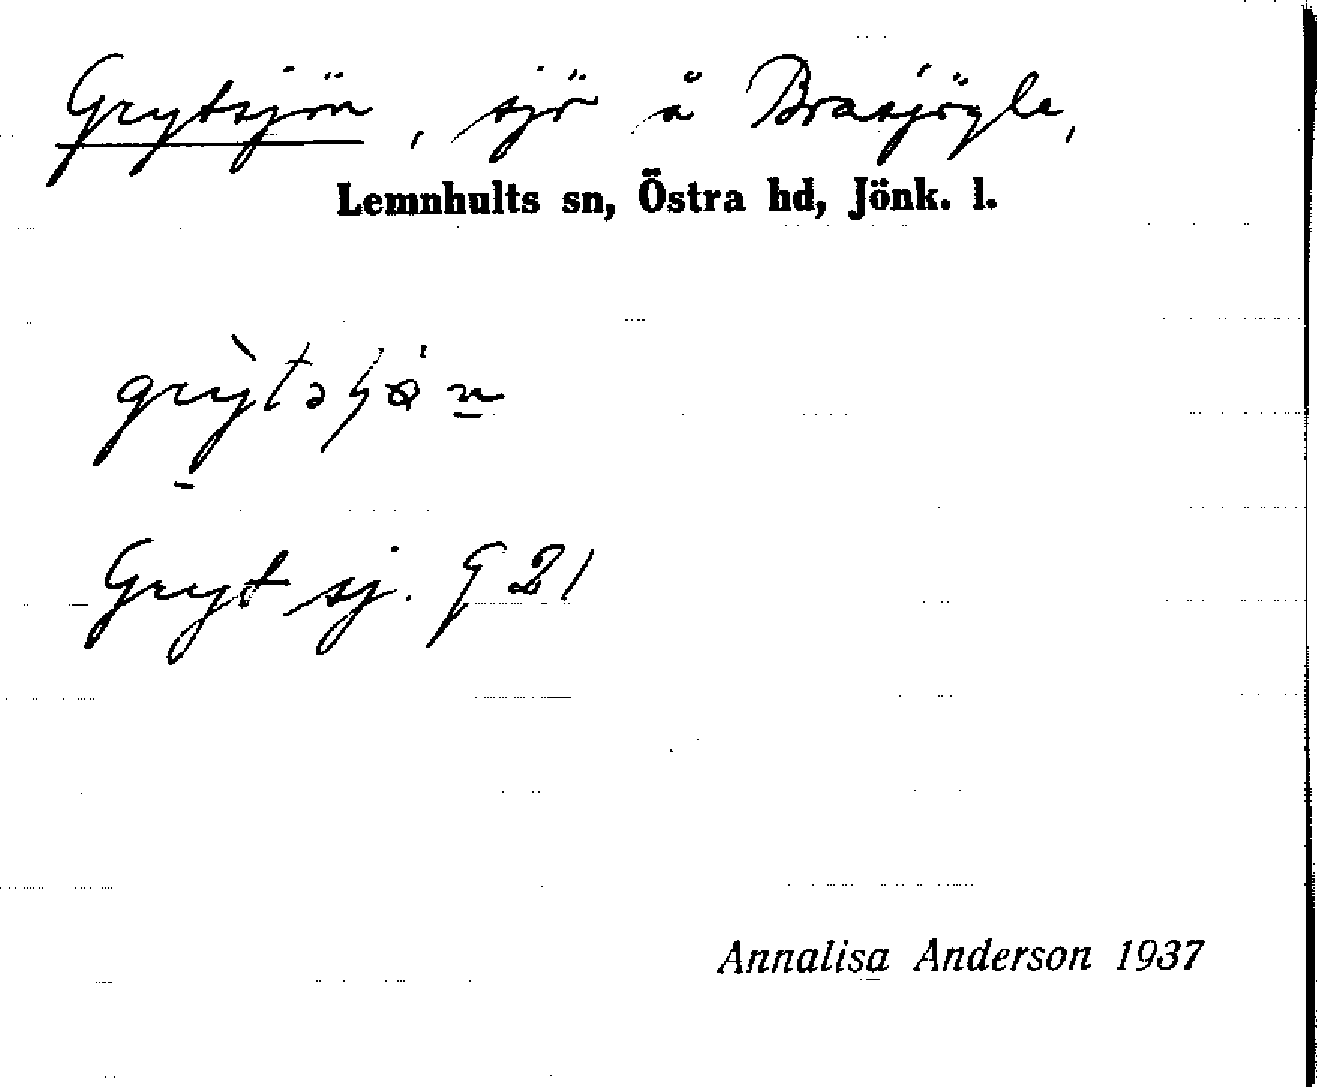 Grytsjön, sjö å Brasjögle,
Lemnhults sn, Östra hd, Jönk. l.
Gryt sj. G 21
Annalisa Anderson 1937